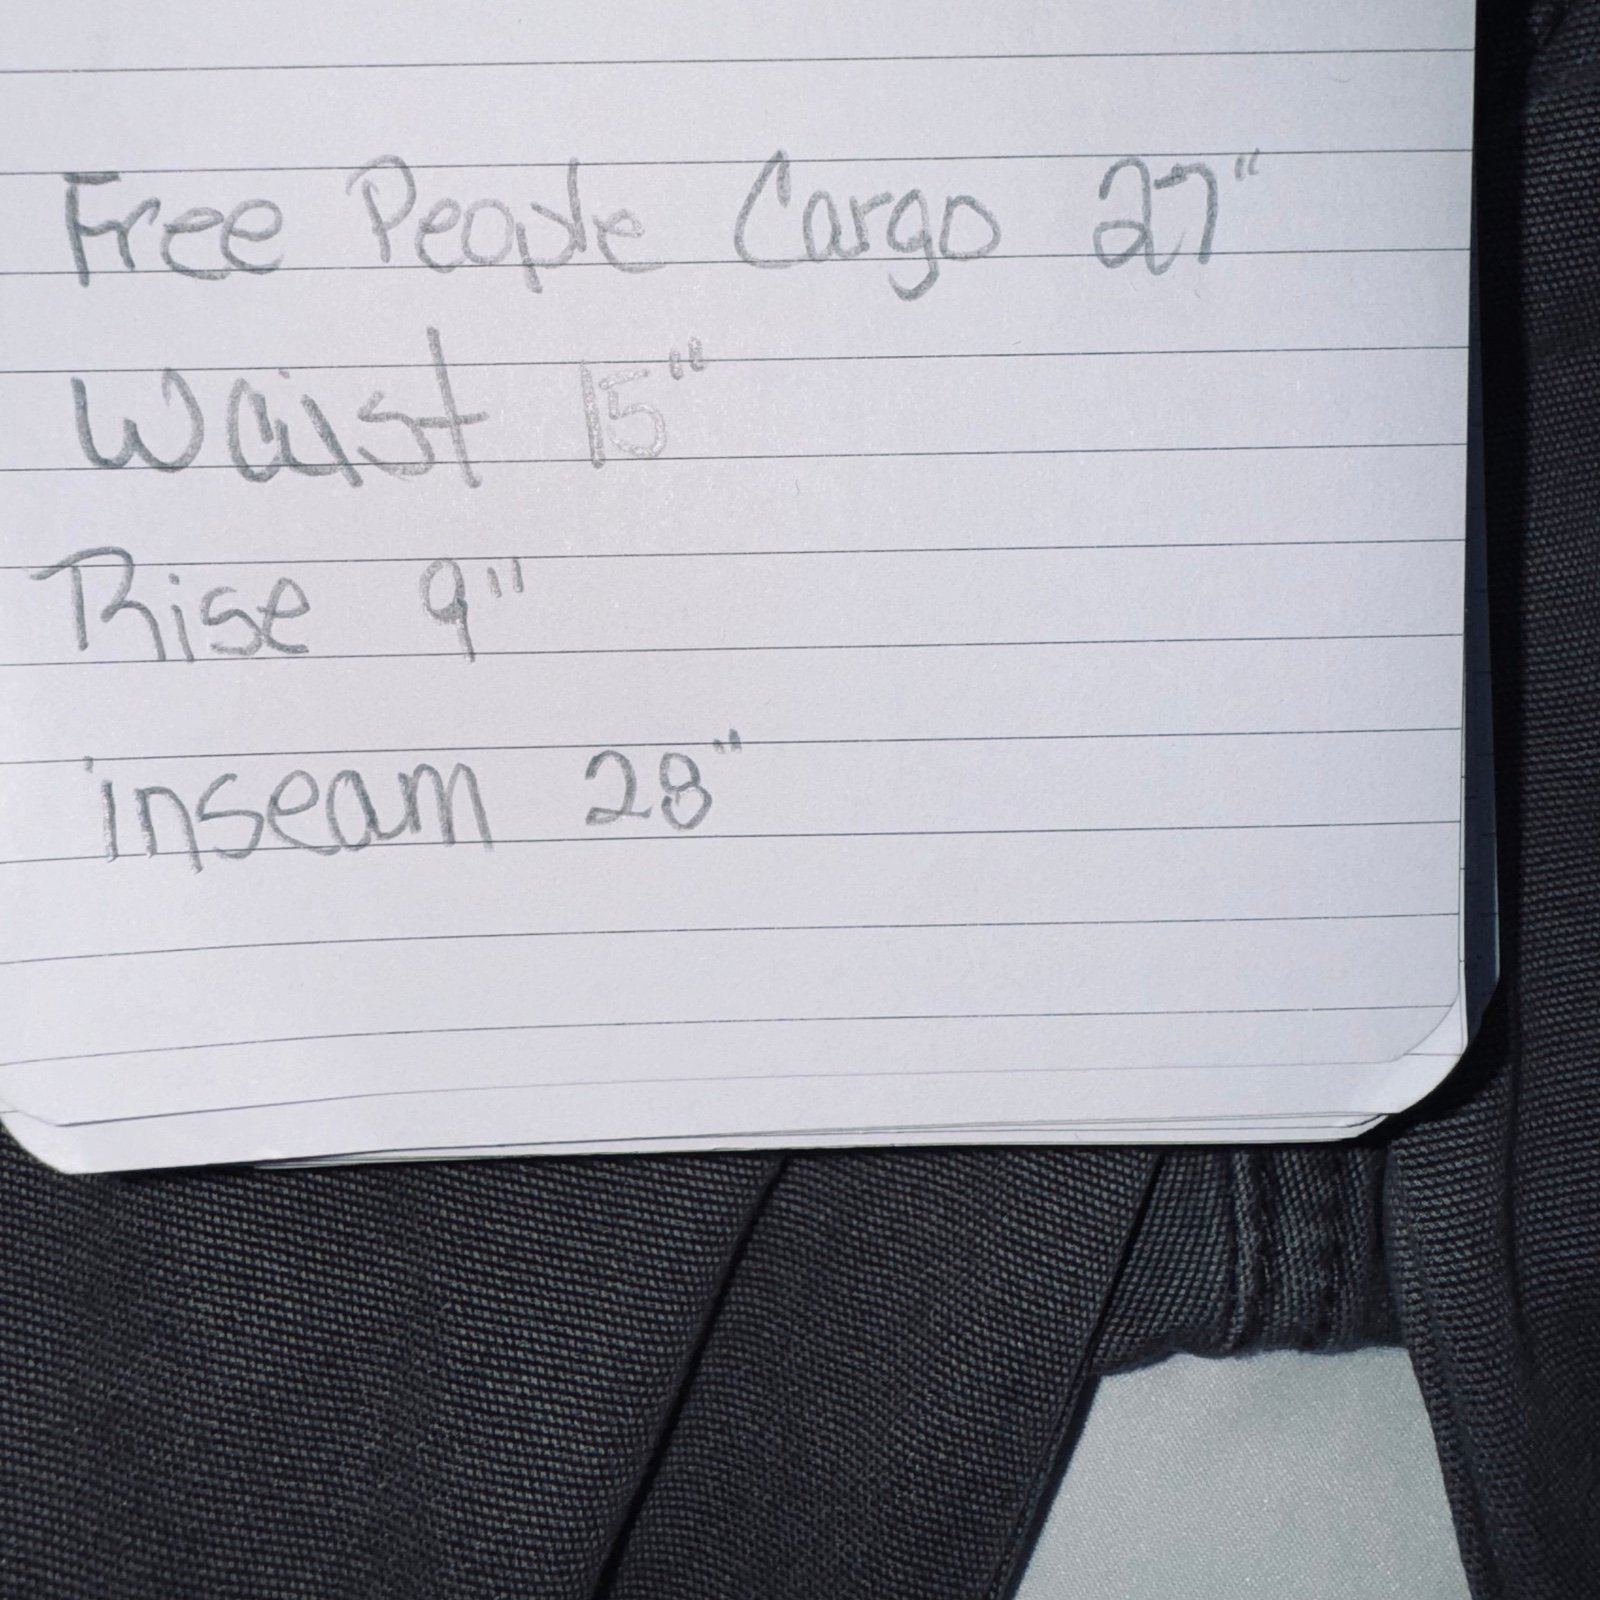 Free People Cargo 27"
Waist 15"
Rise 9"
inseam 28"